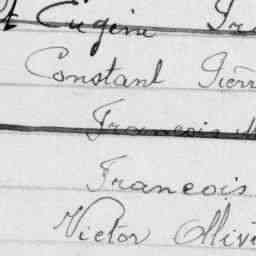 Eugène
Constant Pierr
François M
François
Victor Olliv